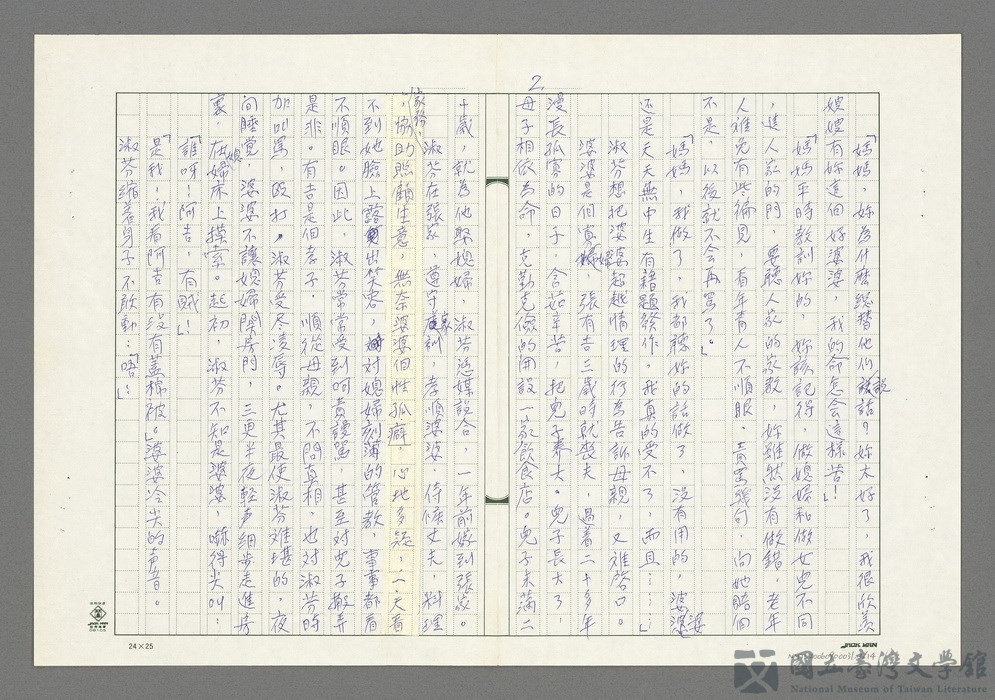 2
「媽媽，妳為什麼總替他們說話？妳太好了，我很欣羨
嫂嫂有妳這個好婆婆，我的命怎會這樣苦！」
「媽媽平時教訓妳的，妳該記得，做媳婦和做女兒不同
，進人家的門，要聽人家的家教，妳雖然沒有做錯，老年
人難免有些偏見，看年青人不順眼，責罵幾句，向她賠個
不是，以後就不會再罵了。」
「媽媽，我做了，我都聽妳的話做了，沒有用的，婆婆
還是天天無中生有藉題發作，我真的受不了，而且……」
淑芬想把婆婆超越情理的行為告訴母親，又難啓口。
婆婆是個真 張有吉三歲時就喪夫，過着二十多年
漫長孤寡的日子，含茹辛苦，把兒子養大。兒子長大了，
母子相依為命，克勤克儉的開設一家飲食店。兒子未滿二
十歲，就為他娶媳婦，淑芬憑媒說合，一年前嫁到張家。
淑芬在張家，遵守家訓，孝順婆婆，侍候丈夫，料理
家務，協助照顧生意，無奈婆婆個性孤癖，心地多疑，一天看
不到她臉上露出笑容，對媳婦刻薄的管教，事事都看
不順眼。因此，淑芬常常受到呵責謾罵，甚至對兒子搬弄
是非。有吉是個孝子，順從母親，不問真相，也對淑芬時
加叫罵，毆打，淑芬受尽凌辱。尤其最使淑芬难堪的，夜
间睡觉，婆婆不讓媳婦関房門，三更半夜輕声細步走進房
裏，在媳婦床上摸索。起初，淑芬不知是婆婆，嚇得尖叫：
「誰呀！阿吉，有賊！」
「是我！我看阿吉有沒有蓋棉被。」婆婆冷尖的声音。
淑芬縮着身子不敢動：「唔！」
24×25
JINOK MAN
國立臺灣文學館
National Museum of Taiwan Literature